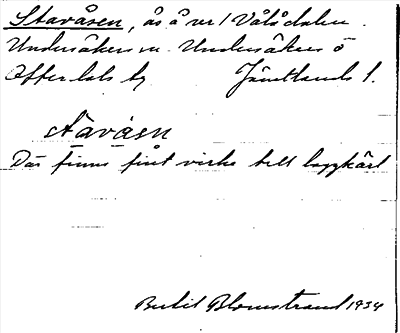 Stavåsen, ås å v. / Vålådalen.
Undersåkers sn. Undersåkers
Offerdals tg Jämtlands l.
stavåsn
Där finns fint virke till laggkärl
Bertil Blomstrand 1934